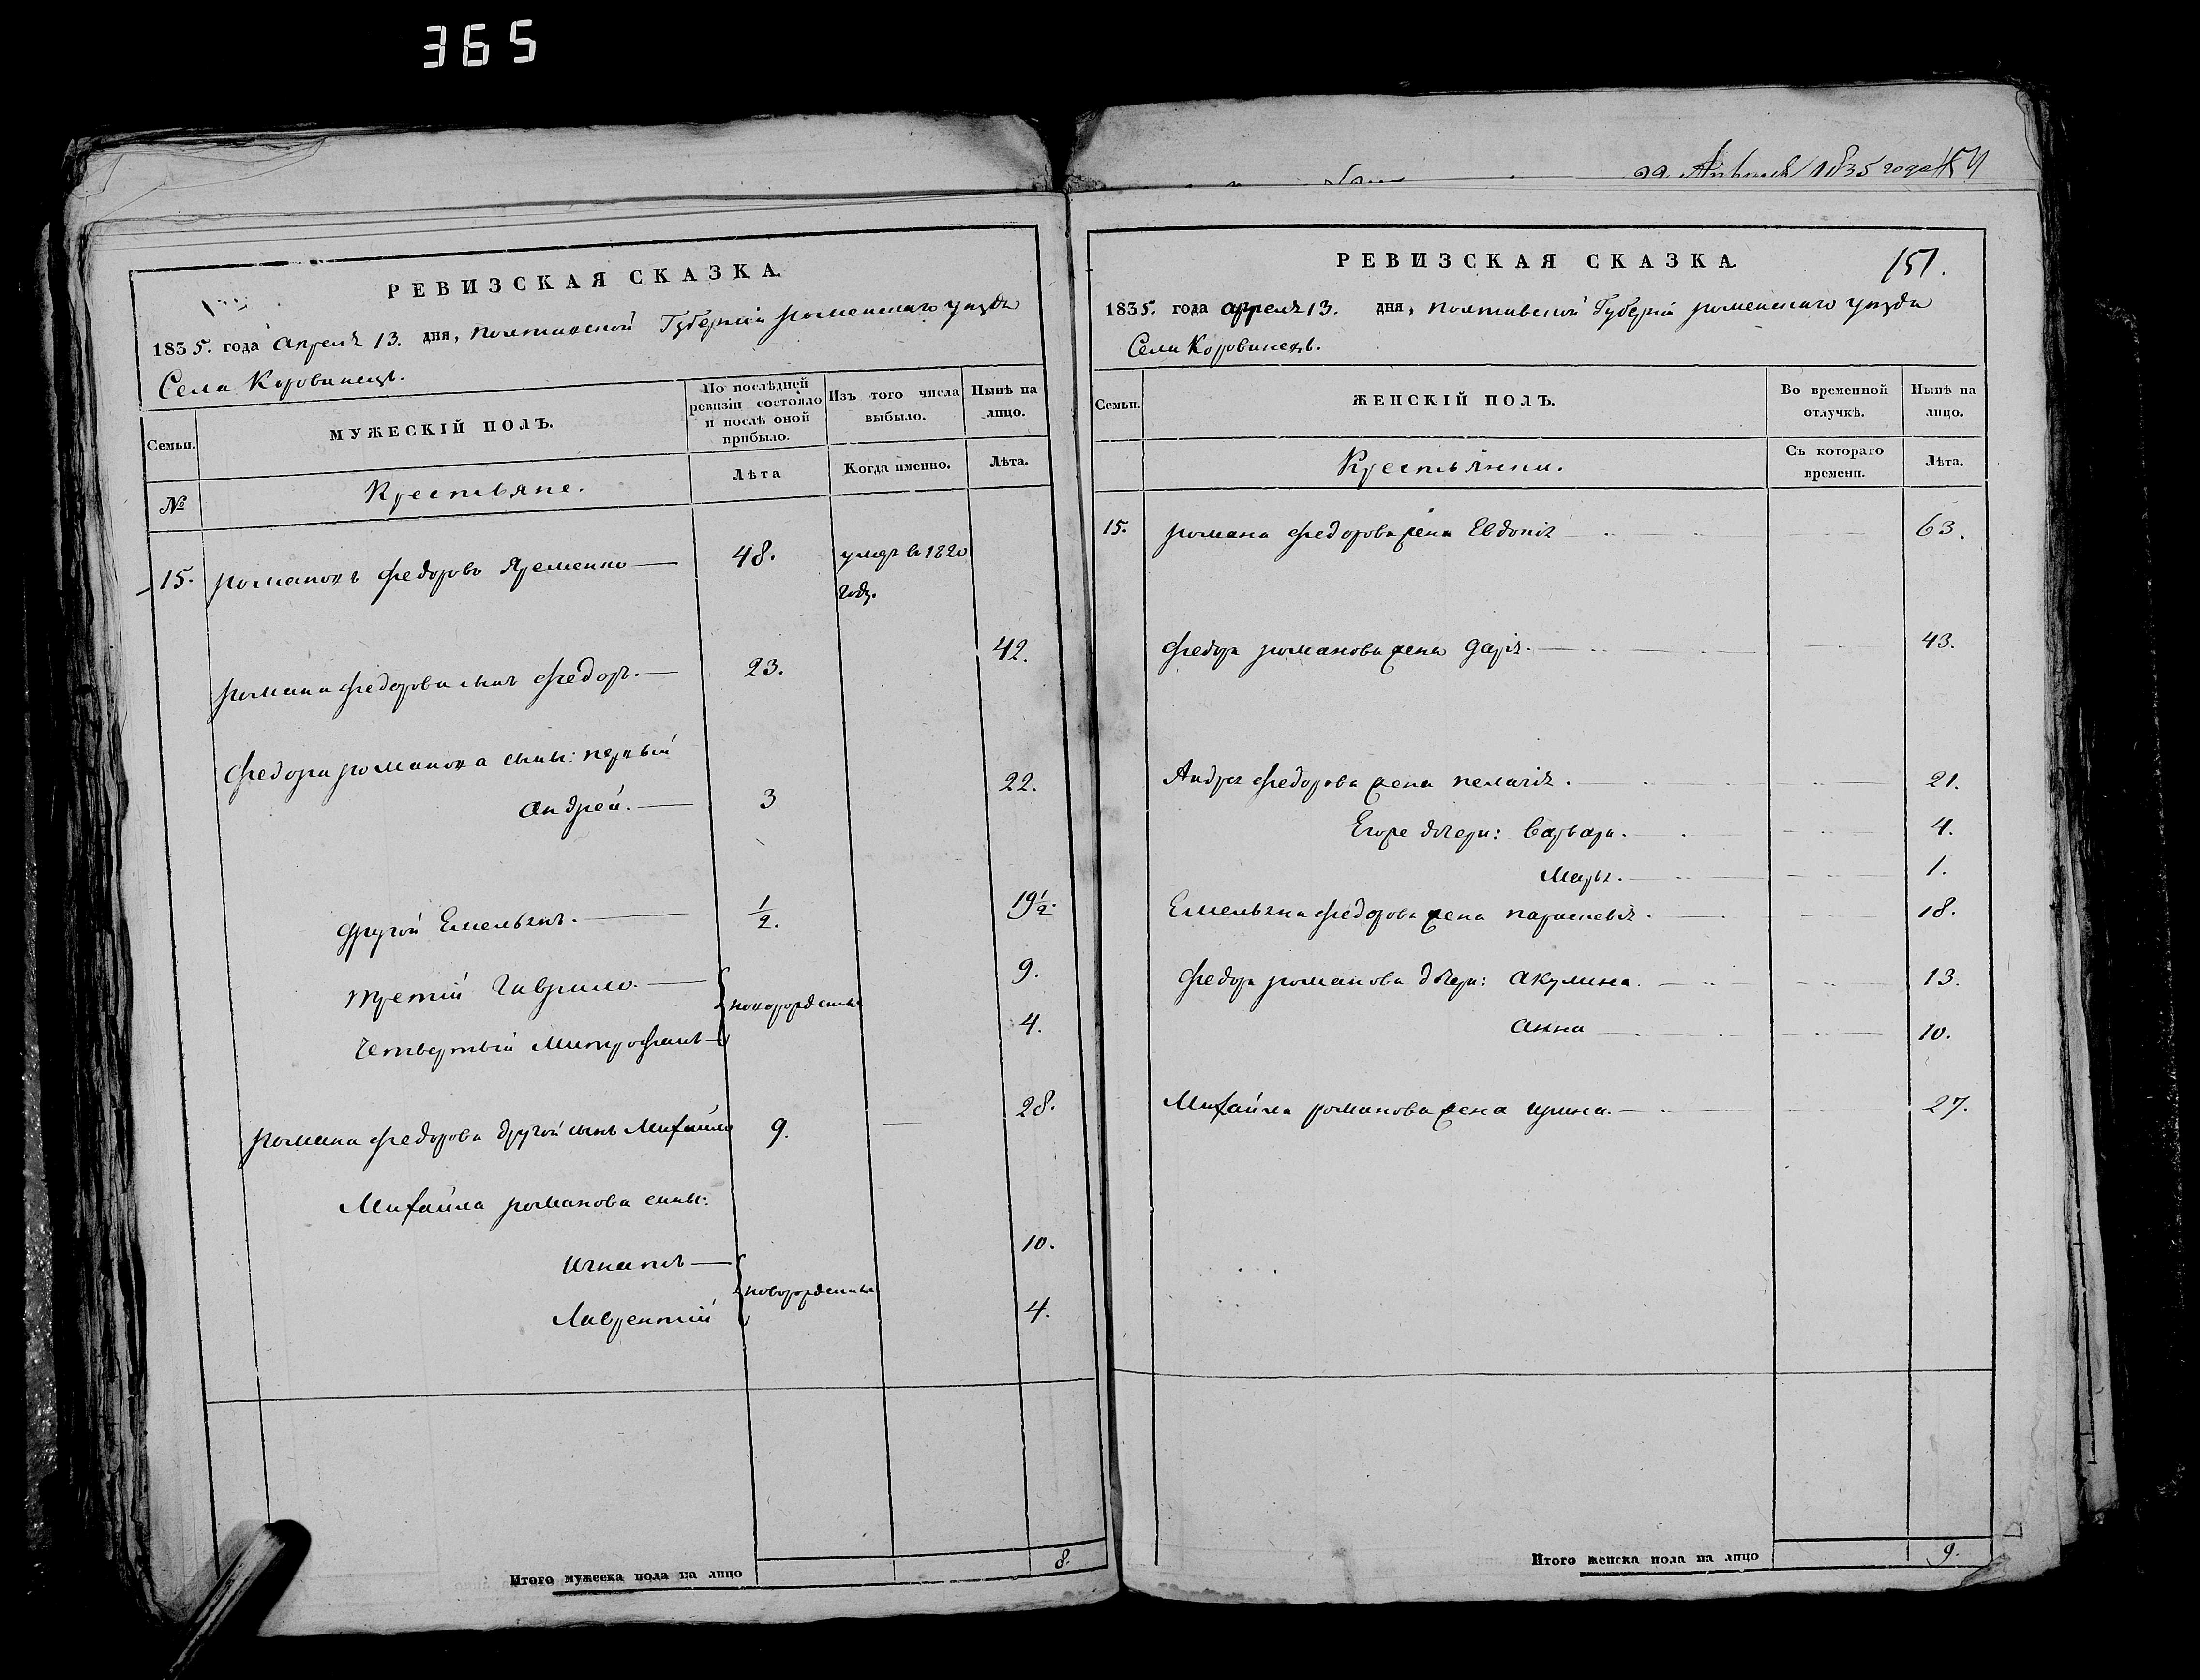 365
22 Апреля 1835 года
РЕВИЗСКАЯ СКАЗКА.
1835. года Апреля 13. дня, Полтавской Губернии роменскаго уезда
Села Коровинецъ.
Семьи.
МУЖЕСКІЙ ПОЛЪ.
По послѣдней ревизіи состояло и послѣ оной прибыло.
Изъ того числа выбыло.
Нынѣ на лицо.
№
Крестьяне.
Лѣта
Когда именно.
Лѣта.
15. романъ Федоровъ Яременко — 48. умер в 1820 году.
романа Федорова сынъ Федоръ. — 23. 42.
Федора романова сыны: первый
Андрей. — 3 22.
другой Емельянъ. — 1/2. 19 1/2.
третій Гаврило. — новорожденные 9.
Четвертый Митрофанъ — 4.
романа Федорова другой сынъ Михайло 9. — 28.
Михайла романова сыны:
Игнатъ — новорожденные 10.
Лаврентій 4.
Итого мужеска пола на лицо 8.
РЕВИЗСКАЯ СКАЗКА.
151.
1835. года Апреля 13. дня, Полтавской Губерніи роменскаго уезда
Села Коровинецъ.
Семьи.
ЖЕНСКІЙ ПОЛЪ.
Во временной отлучкѣ.
Нынѣ на лицо.
Крестьянки.
Съ котораго времени.
Лѣта.
15. романа Федорова жена Евдокія 63.
Федора романова жена Дарія. 43.
Андрея Федорова жена Пелагія. 21.
Егоже дочери: Варвара. 4.
Марія. 1.
Емельяна Федорова жена Парасковія. 18.
Федора романова дочери: Акулина. 13.
Анна 10.
Михайла романова жена Ирина. 27.
Итого женска пола на лицо 9.